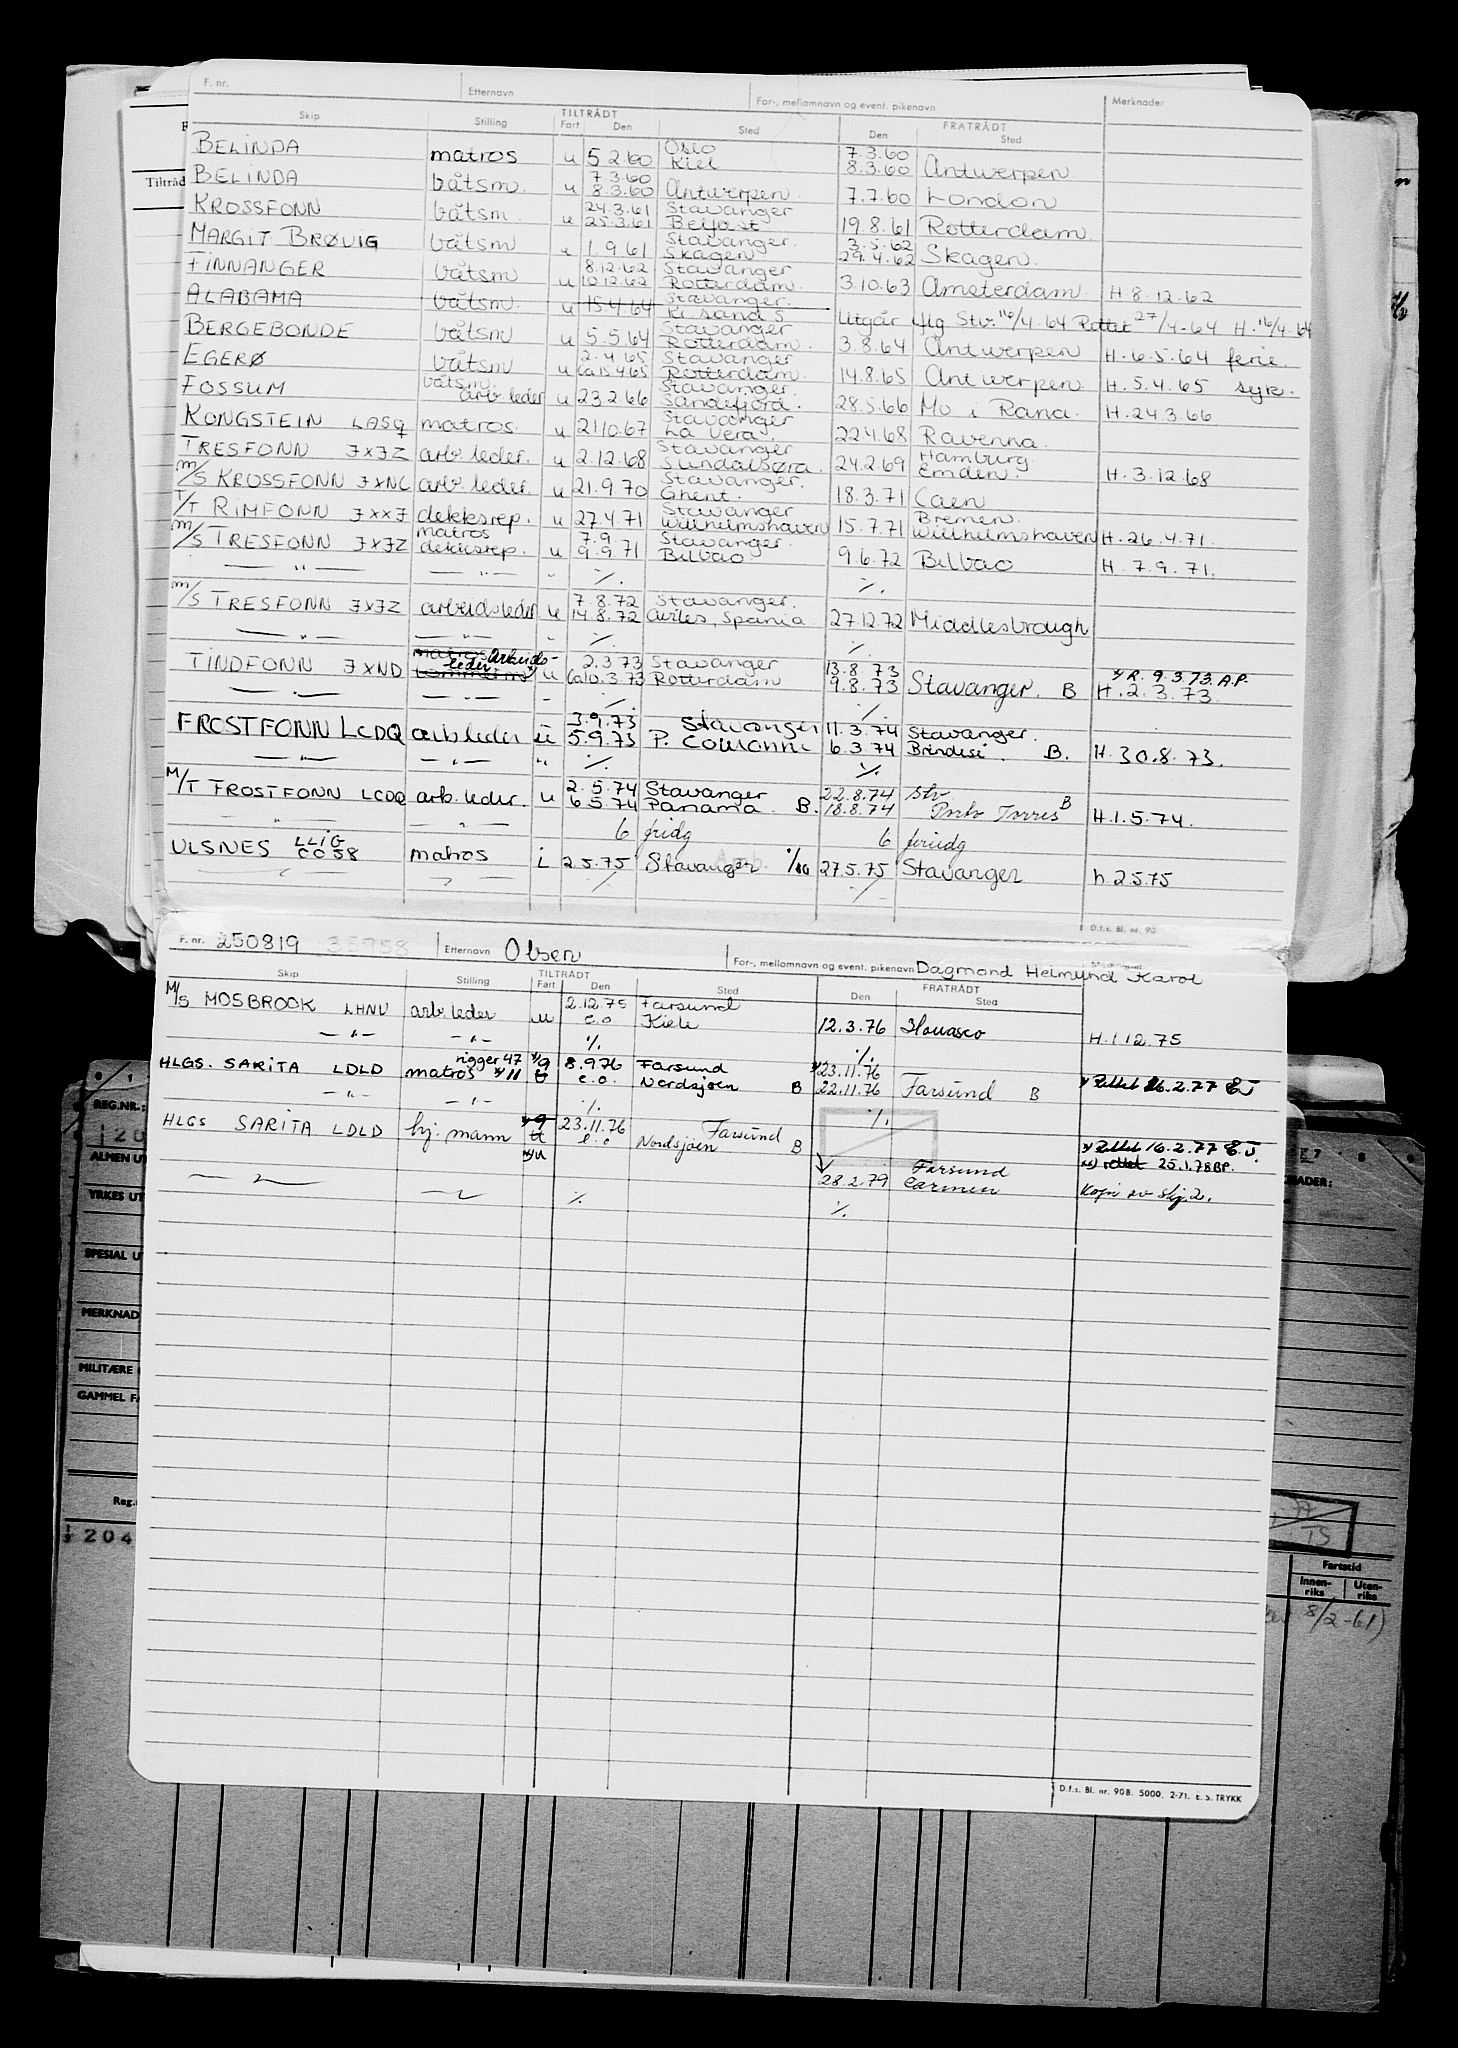 F. nr. Etternavn For-, mellomnavn og event. pikenavn Merknader
Skip Stilling TILTRÅDT Fart Den Sted FRATRÅDT Den Sted
BELINDA matros u 5 2 60 Oslo Kiel 7.3.60 8.3.60 Antwerpen
BELINDA båtsm. u 7.3.60 8.3.60 Antwerpen 7.7.60 London
KROSSFONN båtsm. u 24.3.61 25.3.61 Stavanger Belfast 19.8.61 Rotterdam
MARGIT BRØVIG båtsm u 1.9.61 Stavanger. Skagen 3.5.62 29.4.62 Skagen.
FINNANGER båtsm u 8.12.62 10.12.62 Stavanger Rotterdam. 3.10.63 Amsterdam H 8.12.62
ALABAMA båtsm. u 15.4.64 Stavanger. Kr. sand S Utgår iflg Stv. 16/4-64 Rettet 27/4-64 H. 16/4-64
BERGEBONDE båtsm u 5.5.64 Stavanger Rotterdam. 3.8.64 Antwerpen H. 6.5.64 ferie.
EGERØ båtsm u 2.4.65 ca 15.4.65 Stavanger Rotterdam. 14.8.65 Antwerpen. H. 5.4.65 syk.
FOSSUM båtsm. arb leder u 23.2.66 Stavanger. Sandefjord. 28.5.66 Mo i Rana. H. 24.3.66
KONGSTEIN LASQ matros. u 21.10.67 Stavanger La Vera. 22.4.68 Ravenna.
TRESFONN JXJZ arb. leder. u 2.12.68 Stavanger Sundalsøra. 24.2.69 Hamburg Emden. H. 3.12.68
M/S KROSSFONN JXNC arb. leder. u 21.9.70 Stavanger. Ghent. 18.3.71 Caen
T/T RIMFONN JXXJ dekksrep. u 27.4.71 Stavanger Willhelmshaven 15.7.71 Bremen. Willhelmshaven H. 26.4.71.
M/S TRESFONN JXJZ matros dekksrep. u 7.9. 9.9.71 Stavanger. Bilbao 9.6.72 Bilbao H. 7.9.71.
— " — — " — " ./. ./.
M/S TRESFONN JXJZ arbeidsleder u 7.8.72 14.8.72 Stavanger. Aviles, Spania. 27.12.72 Middlesbrough
— " — — " — ./. ./.
TINDFONN JXND matros Arbeids- leder tømmerm u 2.3.73 ca 10.3.73 Stavanger Rotterdam 13.8.73 9.8.73 Stavanger. B x/ R. 9.3.73. A.P. H. 2.3.73.
— " — — " — - ./. ./.
FROSTFONN LCDQ arb leder u 3.9.73 5.9.73 Stavanger P. 11.3.74 6.3.74 Stavanger. Brindisi. B. H. 30.8.73.
— " — — " — " ./. ./.
M/T FROSTFONN LCDQ arb. leder. u 2.5.74 6.5.74 Stavanger Panama. B. 22.8.74 18.8.74 Stv. Porto Torres B H. 1.5.74.
— " — — " — 6 fridg 6 friidg
ULSNES LLIG CO 58 matros i 2.5.75 Stavanger 27.5.75 Stavanger h. 2.5.75
— " — — " — ./. ./.
D.f.s. Bl. nr. 90
F. nr. 250819 35958 Etternavn Olsen For-, mellomnavn og event. pikenavn Dagmond Heimund Karol
Skip Stilling TILTRÅDT Fart Den Sted FRATRÅDT Den Sted
M/S MOSBROOK LHNV arb. leder u 2.12.75 c.o Farsund Kiele 12.3.76 H. 1.12.75
— " — — " — ./. ./.
HLGS. SARITA LDLD rigger 47 matros x/ 11 x/ g u 8.9.76 c.o. Farsund Nordsjøen B x/23.11.76 22.11.76 Farsund B x/ Rettet 16.2.77 EJ
— " — — " — ./. ./.
HLGS SARITA LDLD hj. mann x/ g u xx/u 23.11.76 c.o Farsund Nordsjøen B x/ Rettet 16.2.77 E.J.
xx) rettet 25.1.78 BP.
28.2.79 Farsund Carmen Kopi av skj. 2.
— " — — " — ./. ./.
D.f.s. Bl. nr. 90B. 5000. 2-71. E.S. TRYKK
REG.NR.:
120
ALMEN UT
YRKES UT
SPESIAL U
MERKNAD
MILITÆRE
GAMMEL FA
Reg.
204
Tiltråd
NADER:
Fartstid
Innen- riks Uten- riks
8/2-61)